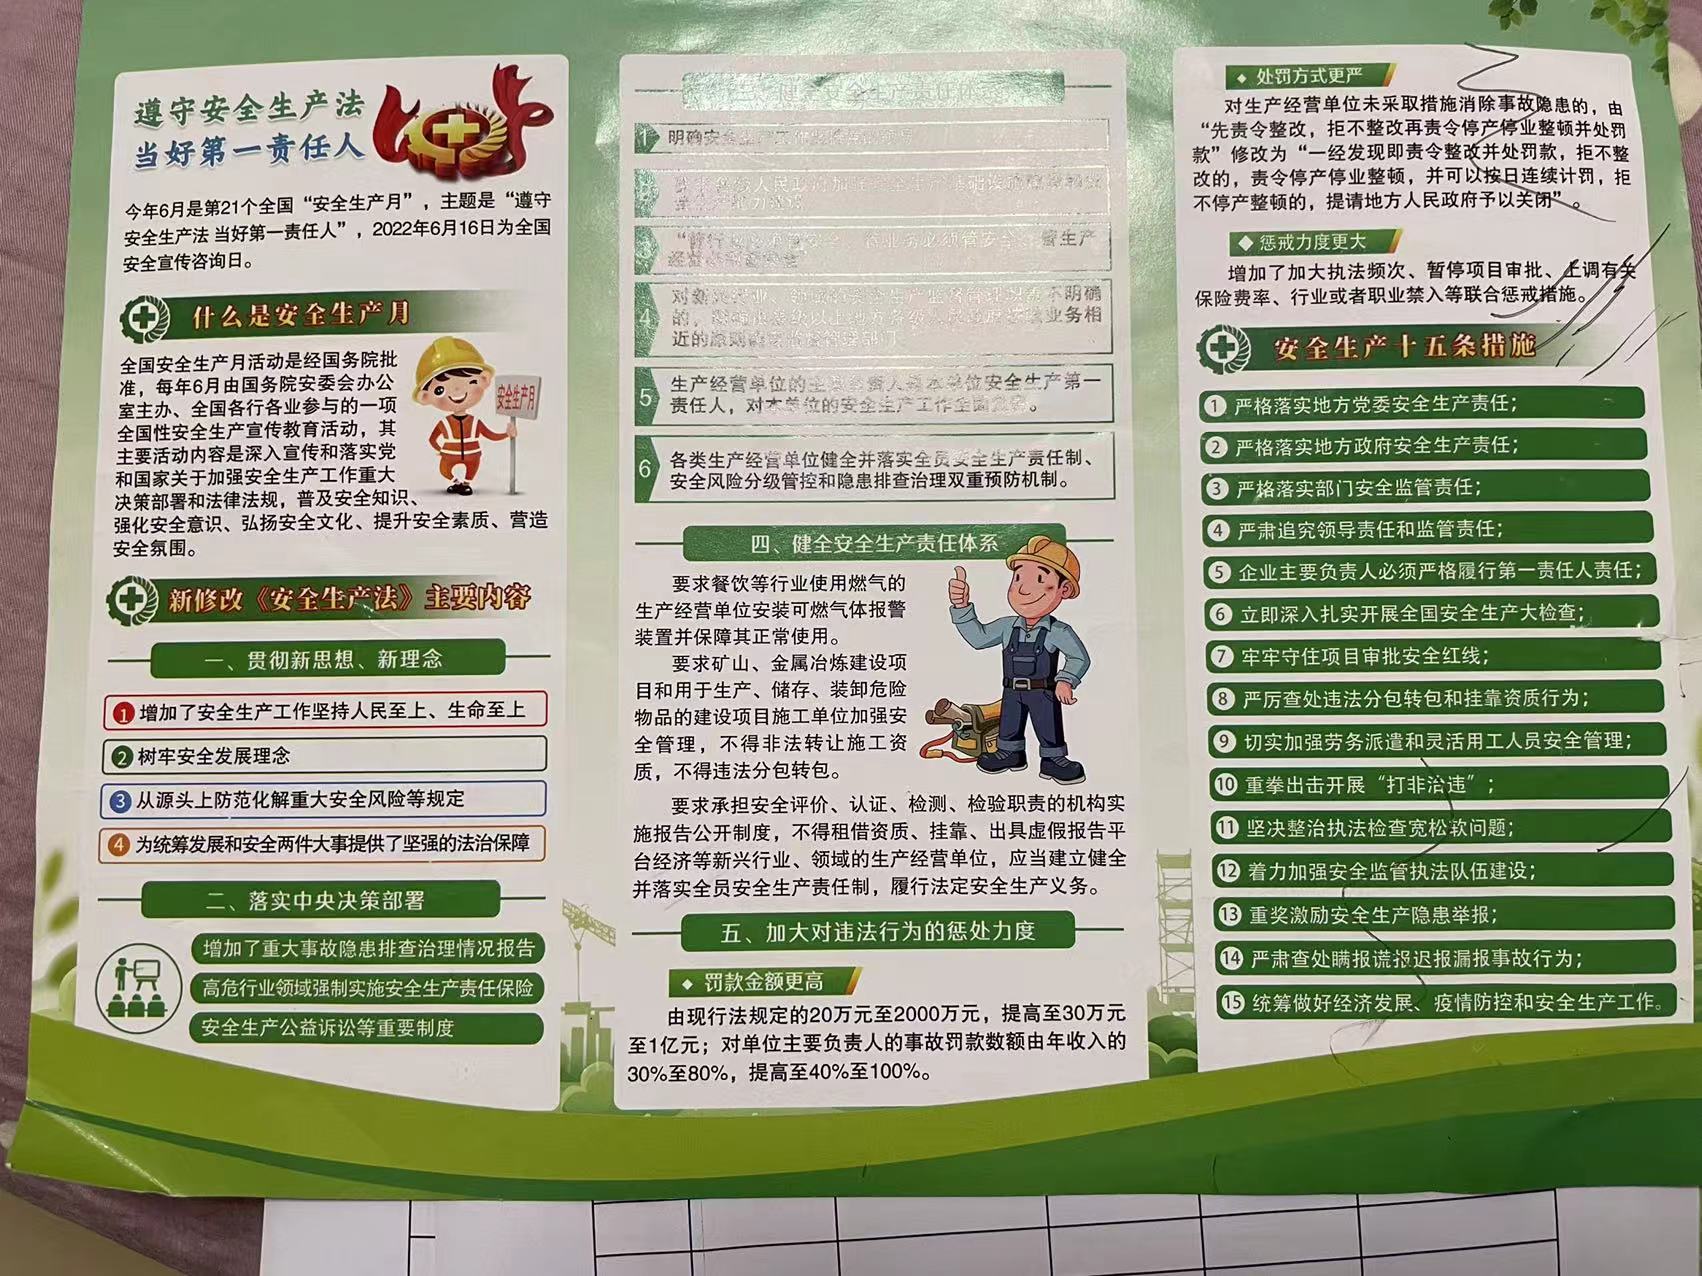 遵守安全生产法
当好第一责任人
今年6月是第21个全国“安全生产月”，主题是“遵守
安全生产法 当好第一责任人”，2022年6月16日为全国
安全宣传咨询日。
什么是安全生产月
全国安全生产月活动是经国务院批
准，每年6月由国务院安委会办公
室主办、全国各行各业参与的一项
全国性安全生产宣传教育活动，其
主要活动内容是深入宣传和落实党
和国家关于加强安全生产工作重大
决策部署和法律法规，普及安全知识、
强化安全意识、弘扬安全文化、提升安全素质、营造
安全氛围。
安全生产月
新修改《安全生产法》主要内容
一、贯彻新思想、新理念
1 增加了安全生产工作坚持人民至上、生命至上
2 树牢安全发展理念
3 从源头上防范化解重大安全风险等规定
4 为统筹发展和安全两件大事提供了坚强的法治保障
二、落实中央决策部署
增加了重大事故隐患排查治理情况报告
高危行业领域强制实施安全生产责任保险
安全生产公益诉讼等重要制度
健全安全生产责任体系
1 明确安全生产工作
人民政府加强安全生产基础设施
3 管行业必须管安全、管业务必须管安全、管生产
经营必须管安全
4 对新兴行业、领域的安全生产监督管理职责不明确
的，业务相
近的原则确定
5 生产经营单位的主要负责人是本单位安全生产第一
责任人，对本单位的安全生产工作全面负责。
6 各类生产经营单位健全并落实全员安全生产责任制、
安全风险分级管控和隐患排查治理双重预防机制。
四、健全安全生产责任体系
要求餐饮等行业使用燃气的
生产经营单位安装可燃气体报警
装置并保障其正常使用。
要求矿山、金属冶炼建设项
目和用于生产、储存、装卸危险
物品的建设项目施工单位加强安
全管理，不得非法转让施工资
质，不得违法分包转包。
要求承担安全评价、认证、检测、检验职责的机构实
施报告公开制度，不得租借资质、挂靠、出具虚假报告平
台经济等新兴行业、领域的生产经营单位，应当建立健全
并落实全员安全生产责任制，履行法定安全生产义务。
五、加大对违法行为的惩处力度
◆ 罚款金额更高
由现行法规定的20万元至2000万元，提高至30万元
至1亿元；对单位主要负责人的事故罚款数额由年收入的
30%至80%，提高至40%至100%。
◆ 处罚方式更严
对生产经营单位未采取措施消除事故隐患的，由
“先责令整改，拒不整改再责令停产停业整顿并处罚
款”修改为“一经发现即责令整改并处罚款，拒不整
改的，责令停产停业整顿，并可以按日连续计罚，拒
不停产整顿的，提请地方人民政府予以关闭”。
◆ 惩戒力度更大
增加了加大执法频次、暂停项目审批、上调有关
保险费率、行业或者职业禁入等联合惩戒措施。
安全生产十五条措施
1 严格落实地方党委安全生产责任；
2 严格落实地方政府安全生产责任；
3 严格落实部门安全监管责任；
4 严肃追究领导责任和监管责任；
5 企业主要负责人必须严格履行第一责任人责任；
6 立即深入扎实开展全国安全生产大检查；
7 牢牢守住项目审批安全红线；
8 严厉查处违法分包转包和挂靠资质行为；
9 切实加强劳务派遣和灵活用工人员安全管理；
10 重拳出击开展“打非治违”；
11 坚决整治执法检查宽松软问题；
12 着力加强安全监管执法队伍建设；
13 重奖激励安全生产隐患举报；
14 严肃查处瞒报谎报迟报漏报事故行为；
15 统筹做好经济发展、疫情防控和安全生产工作。